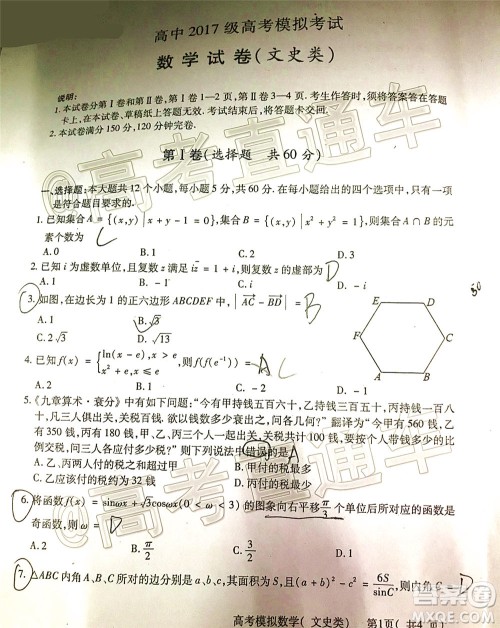 高中 2017 级高考模拟考试
数学试卷(文史类)
说明:
1. 本试卷分第Ⅰ卷和第Ⅱ卷, 第Ⅰ卷 1—2 页, 第Ⅱ卷 3—4 页. 考生作答时, 须将答案答在答题
卡上, 在本试卷、草稿纸上答题无效. 考试结束后, 将答题卡交回.
2. 本试卷满分 150 分, 120 分钟完卷.
第Ⅰ卷(选择题 共 60 分)
一、选择题: 本大题共 12 个小题, 每小题 5 分, 共 60 分. 在每小题给出的四个选项中, 只有一项
是符合题目要求的.
1. 已知集合 A = {(x,y) | x + y - 1 = 0}, 集合 B = {(x,y) | x² + y² = 1}, 则集合 A ∩ B 的元
素个数为 C
A. 0 B. 1 C. 2 D. 3
2. 已知 i 为虚数单位, 且复数 z 满足 iz = 1 + i, 则复数 z 的虚部为 D
A. 1 B. -1 C. i D. -i
3. 如图, 在边长为 1 的正六边形 ABCDEF 中, | AC - BD | = B
A. 1 B. √3
C. 2√3 D. √13
E D
F C
A B
4. 已知 f(x) = { ln(x - e), x > e,
则 f(f(e⁻¹)) = A C
A. 0 B. 1 C. -1 D. -2
5. 《九章算术·衰分》中有如下问题: “今有甲持钱五百六十, 乙持钱三百五十, 丙持钱一百八
十, 凡三人俱出关, 关税百钱. 欲以钱数多少出之, 问各几何?” 翻译为“今有甲带钱 560 钱, 乙
带钱 350 钱, 丙带钱 180 钱, 三人一起出关, 关税共计 100 钱, 要按个人带钱多少的比例交税,
问三人各应付多少税?” 则下列说法中错误的是 A
A. 乙、丙两人付的税超过甲 B. 甲付的税最多
C. 乙应付的税约为 32 钱 D. 丙付的税最少
6. 将函数 f(x) = sinωx + √3cosωx(0 < ω < 2) 的图象向右平移 π/3 个单位后所对应的函数是
奇函数, 则 ω = D
A. 2 B. π/2 C. 3/2 D. 1
7. △ABC 内角 A、B、C 所对的边分别是 a、b、c, 其面积为 S, 且 (a + b)² - c² = 6S/sinC, 则内角 C = D
高考模拟数学( 文史类) 第1页( 共4 页)
@高考直通车
@高考直通车